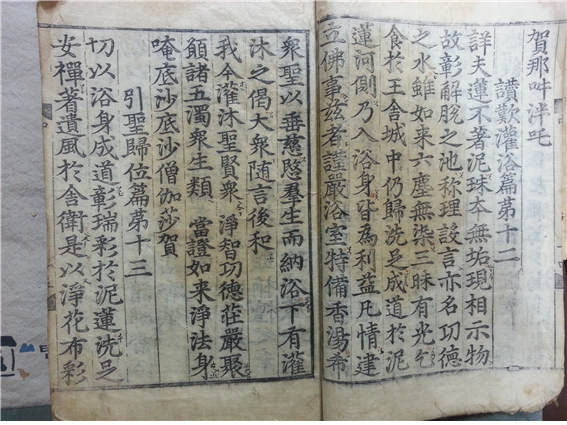 賀那吽泮吒
讃歎灌浴篇苐十二
詳夫蓮不著泥珠本無垢現相示物
故彰解脫之池称理設言亦名功德
之水雖如来六塵無染三昧有光乞
食於王舍城中仍歸洗足成道於泥
蓮河側乃入浴身皆為利益凡情建
立佛事玆者謹嚴浴室特備香湯希
衆聖以垂慈愍羣生而納浴下有灌
沐之偈大衆随言後和
我今灌沐聖賢衆 淨智功德莊嚴聚
願諸五濁衆生類 當證如来淨法身
唵底沙底沙僧伽莎賀
引聖歸位篇苐十三
切以浴身成道彰瑞彩於泥蓮洗足
安禪著遺風於舍衛是以淨花布彩